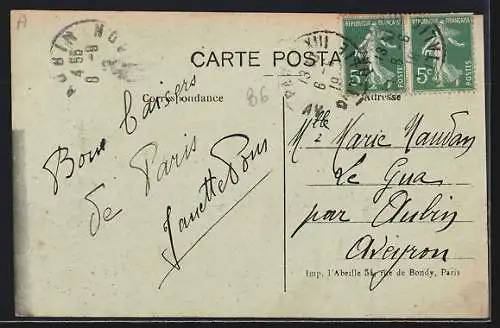 A
AUBIN
4 55
8 -8
CARTE POSTALE
REPUBLIQUE FRANÇAISE
5c POSTES
REPUBLIQUE FRANÇAISE
5c POSTES
Correspondance
Adresse
86
Bons baisers
de Paris
Mlle Marie
Le Gua
par Aubin
Aveyron
Imp. l'Abeille 51, rue de Bondy, Paris